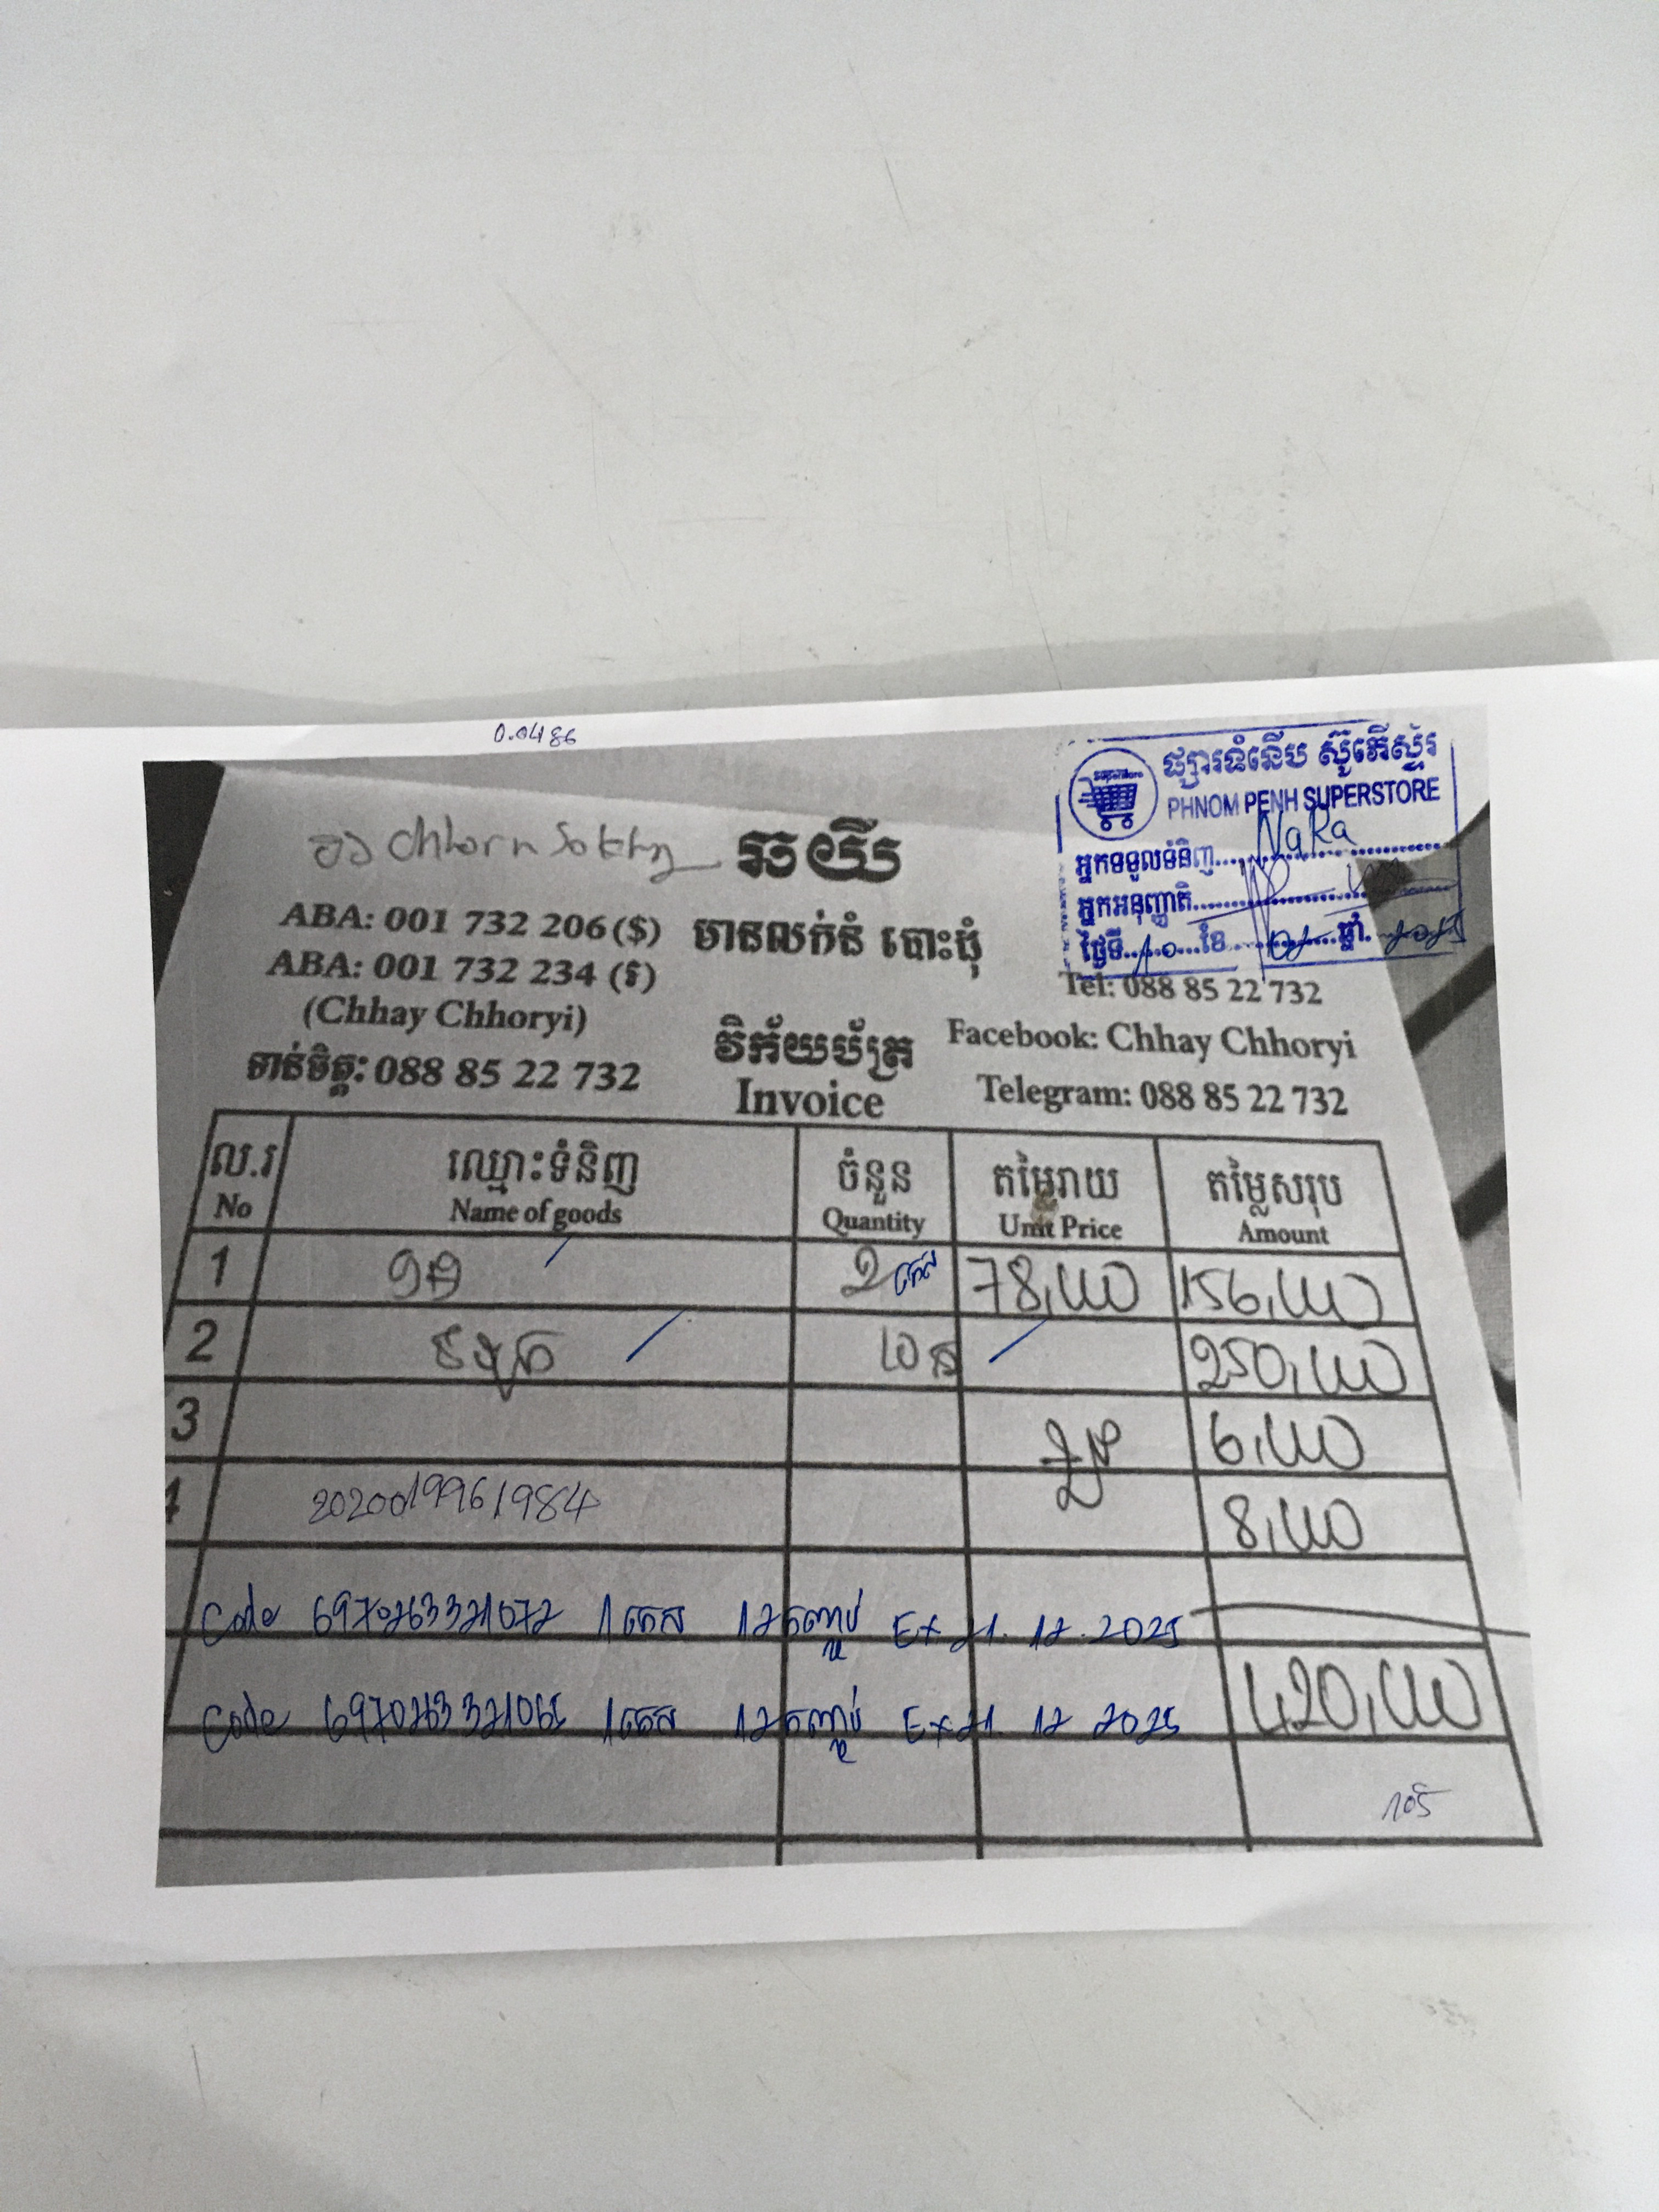 0.0486
ផ្សារទំនើប ស៊ូភើស្ទ័រ
PHNOM PENH SUPERSTORE
អ្នកទទួលទំនិញ.....NaRa
អ្នកអនុញ្ញាតិ
ថ្ងៃទី...10...ខែ...02...ឆ្នាំ..2025
Chhorn Sokhy
ឆយី
ABA: 001 732 206 ($)
មានលក់នំ បោះដុំ
ABA: 001 732 234 (៛)
Tel: 088 85 22 732
(Chhay Chhoryi)
វិក័យប័ត្រ
Facebook: Chhay Chhoryi
ទាន់ចិត្ត: 088 85 22 732
Invoice
Telegram: 088 85 22 732
ល.រ ឈ្មោះទំនិញ ចំនួន តម្លៃរាយ តម្លៃសរុប
No Name of goods Quantity Unit Price Amount
1 2 កេស 78,000 156,000
2 10 250,000
3 6,000
4 2020019961984 8,000
Code 6970263321072 1កេស 12កញ្ចប់ Ex 21.12.2025
Code 6970263321065 1កេស 12កញ្ចប់ Ex 21 12 2025
420,000
105